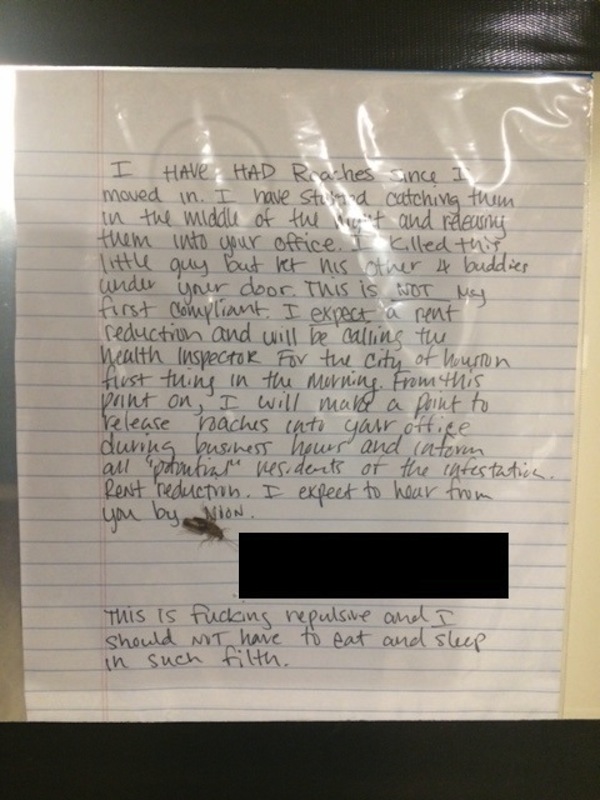 I HAVE HAD Roaches since I
moved in. I have started catching them
in the middle of the night and releasing
them into your office. I killed this
little guy but let his other 4 buddies
under your door. This is NOT my
first compliant. I expect a rent
reduction and will be calling the
Health Inspector For the City of Houston
first thing in the morning. From this
point on, I will make a point to
release roaches into your office
during business hours and inform
all "potential" residents of the infestation.
Rent reduction. I expect to hear from
you by
THIS IS fucking repulsive and I
should NOT have to eat and sleep
in such filth.